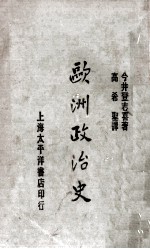 今井登志喜著
高希聖譯
歐洲政治史
上海太平洋書店印行